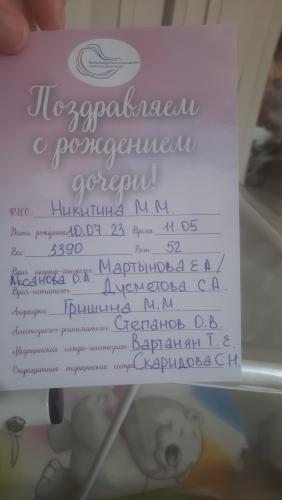 Поздравляем
с рождением
дочери!
Ф.И.О. Никитина М.М.
Дата рождения 10.07.23 Время 11 05
Вес 3390 Рост 52
Врач акушер-гинеколог Мартынова Е.А/
Аксанова О.А.
Врач-неонатолог Дусметова С.А.
Акушерка Гришина М.М.
Анестезиолог-реаниматолог Степанов О.В.
Медицинская сестра-анестезист Вартанян Т.Е.
Операционная медицинская сестра Скаридова С.Н.